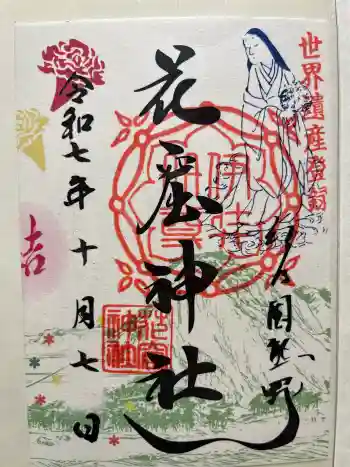 世界遺産登録
紀州国熊野
花窟神社
令和七年十月七日
吉
花窟
神社